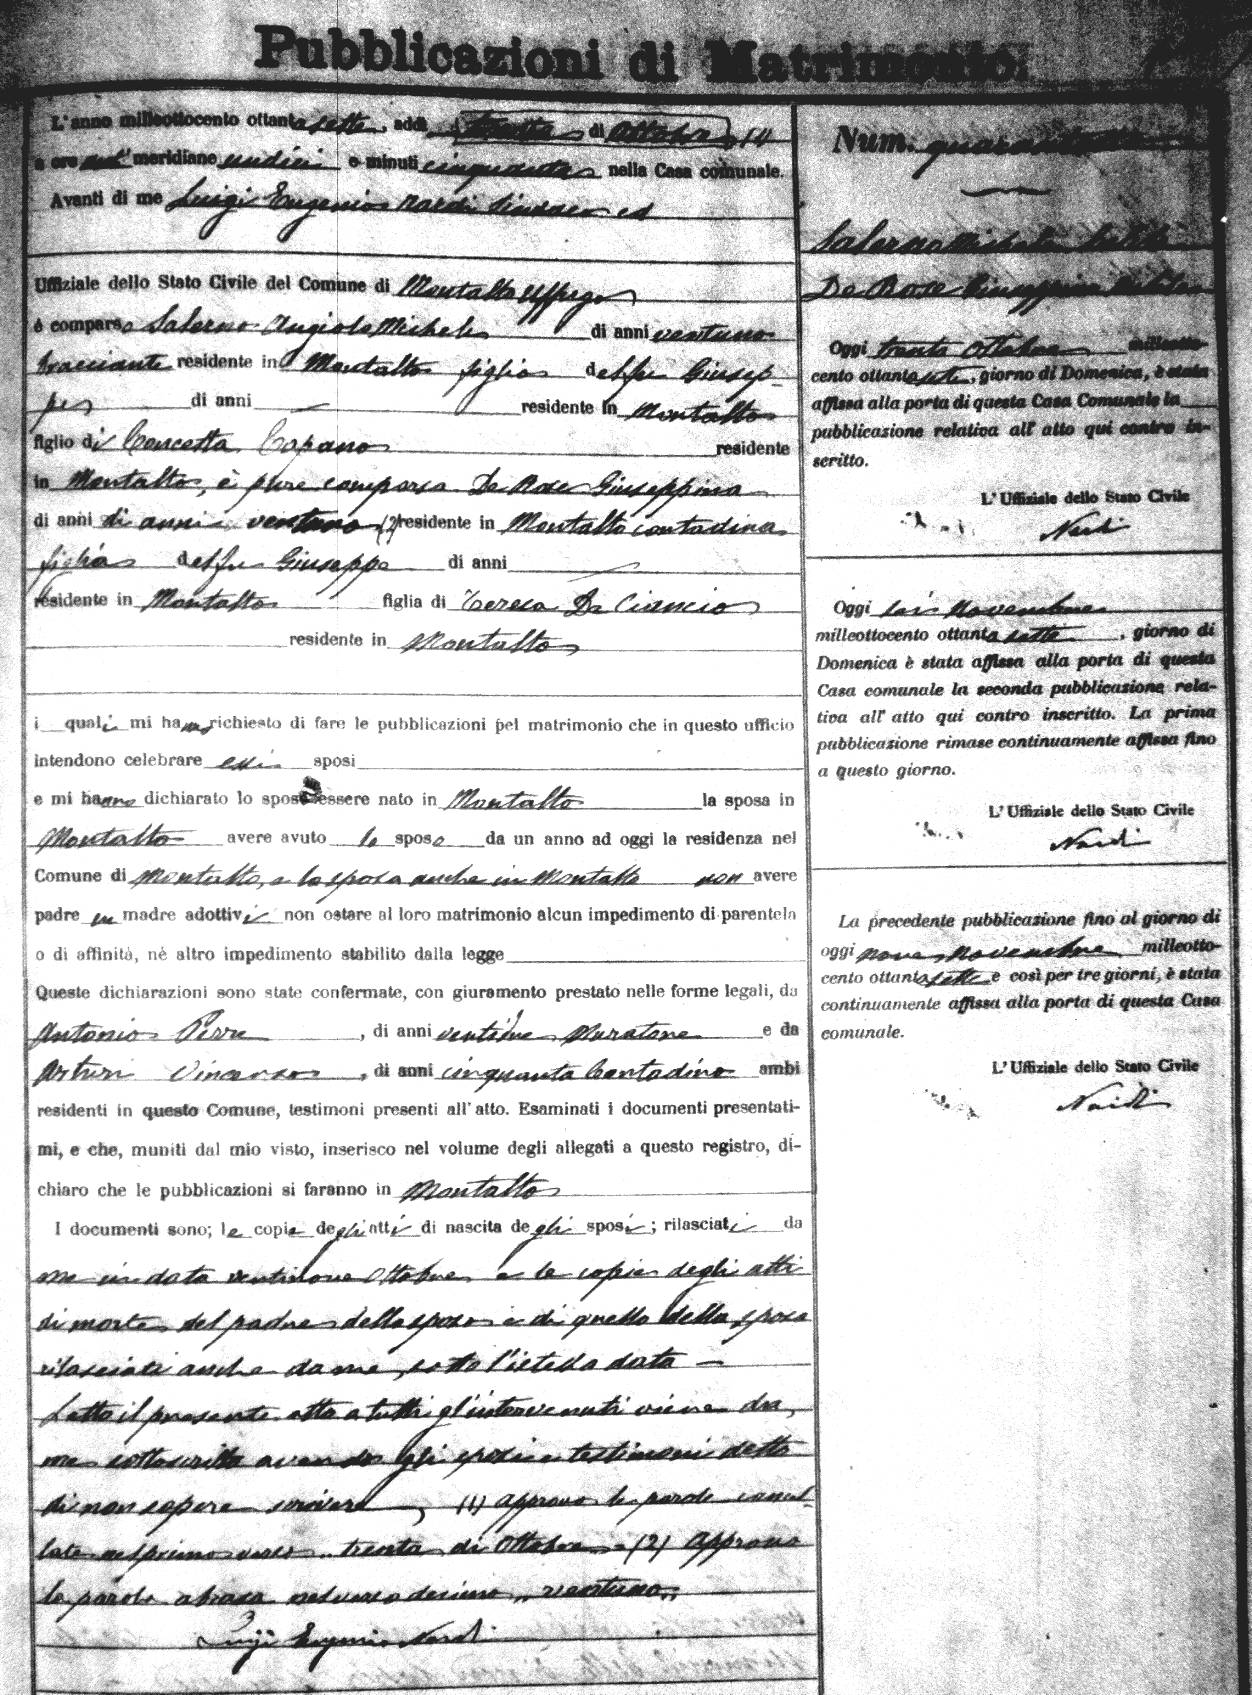 Pubblicazioni di Matrimonio.
L'anno milleottocento ottantasette, addì trenta di Ottobre (1)
a ore ant meridiane undici e minuti cinquanta nella Casa comunale.
Avanti di me Luigi Eugenio Nardi Sindaco ed
Uffiziale dello Stato Civile del Comune di Montalto Uffugo
è comparso Salerno Angiolo Michele di anni ventuno
bracciante residente in Montalto figlio del fu Giusep-
pe di anni residente in Montalto
figlio di Concetta Capano residente
in Montalto, è pure comparsa De Rose Giuseppina
di anni di anni ventuno (2) residente in Montalto contadina
figlia del fu Giuseppe di anni
residente in Montalto figlia di Teresa De Ciancio
residente in Montalto
i quali mi hanno richiesto di fare le pubblicazioni pel matrimonio che in questo ufficio
intendono celebrare essi sposi
e mi hanno dichiarato lo sposo essere nato in Montalto la sposa in
Montalto avere avuto lo sposo da un anno ad oggi la residenza nel
Comune di Montalto, e la sposa anche in Montalto non avere
padre nè madre adottivi non ostare al loro matrimonio alcun impedimento di parentela
o di affinità, nè altro impedimento stabilito dalla legge
Queste dichiarazioni sono state confermate, con giuramento prestato nelle forme legali, da
Antonio Perri, di anni Muratore e da
Arturi Vincenzo, di anni cinquanta Contadino ambi
residenti in questo Comune, testimoni presenti all'atto. Esaminati i documenti presentati-
mi, e che, muniti dal mio visto, inserisco nel volume degli allegati a questo registro, di-
chiaro che le pubblicazioni si faranno in Montalto
I documenti sono; le copie degli atti di nascita degli sposi; rilasciati da
me in data ventinove Ottobre e le copie degli atti
di morte del padre dello sposo e di quello della sposa
rilasciati anche da me, sotto l'istessa data —
Letto il presente atto a tutti gl'intervenuti viene da
me sottoscritto avendo gli sposi e testimoni detto
di non sapere scrivere, (1) Approvo le parole cancel-
late nel primo verso „ trenta di Ottobre e (2) Approvo
la parola abrasa nel verso decimo „ ventuno „
Luigi Eugenio Nardi
Num.
Salerno Michele
De Rose Giuseppina
Oggi trenta Ottobre milleotto-
cento ottantasette, giorno di Domenica, è stata
affissa alla porta di questa Casa Comunale la
pubblicazione relativa all'atto qui contro in-
scritto.
L'Uffiziale dello Stato Civile
Nardi
Oggi sei Novembre
milleottocento ottantasette, giorno di
Domenica è stata affissa alla porta di questa
Casa comunale la seconda pubblicazione rela-
tiva all'atto qui contro inscritto. La prima
pubblicazione rimase continuamente affissa fino
a questo giorno.
L'Uffiziale dello Stato Civile
Nardi
La precedente pubblicazione fino al giorno di
oggi nove Novembre milleotto-
cento ottantasette e così per tre giorni, è stata
continuamente affissa alla porta di questa Casa
comunale.
L'Uffiziale dello Stato Civile
Nardi